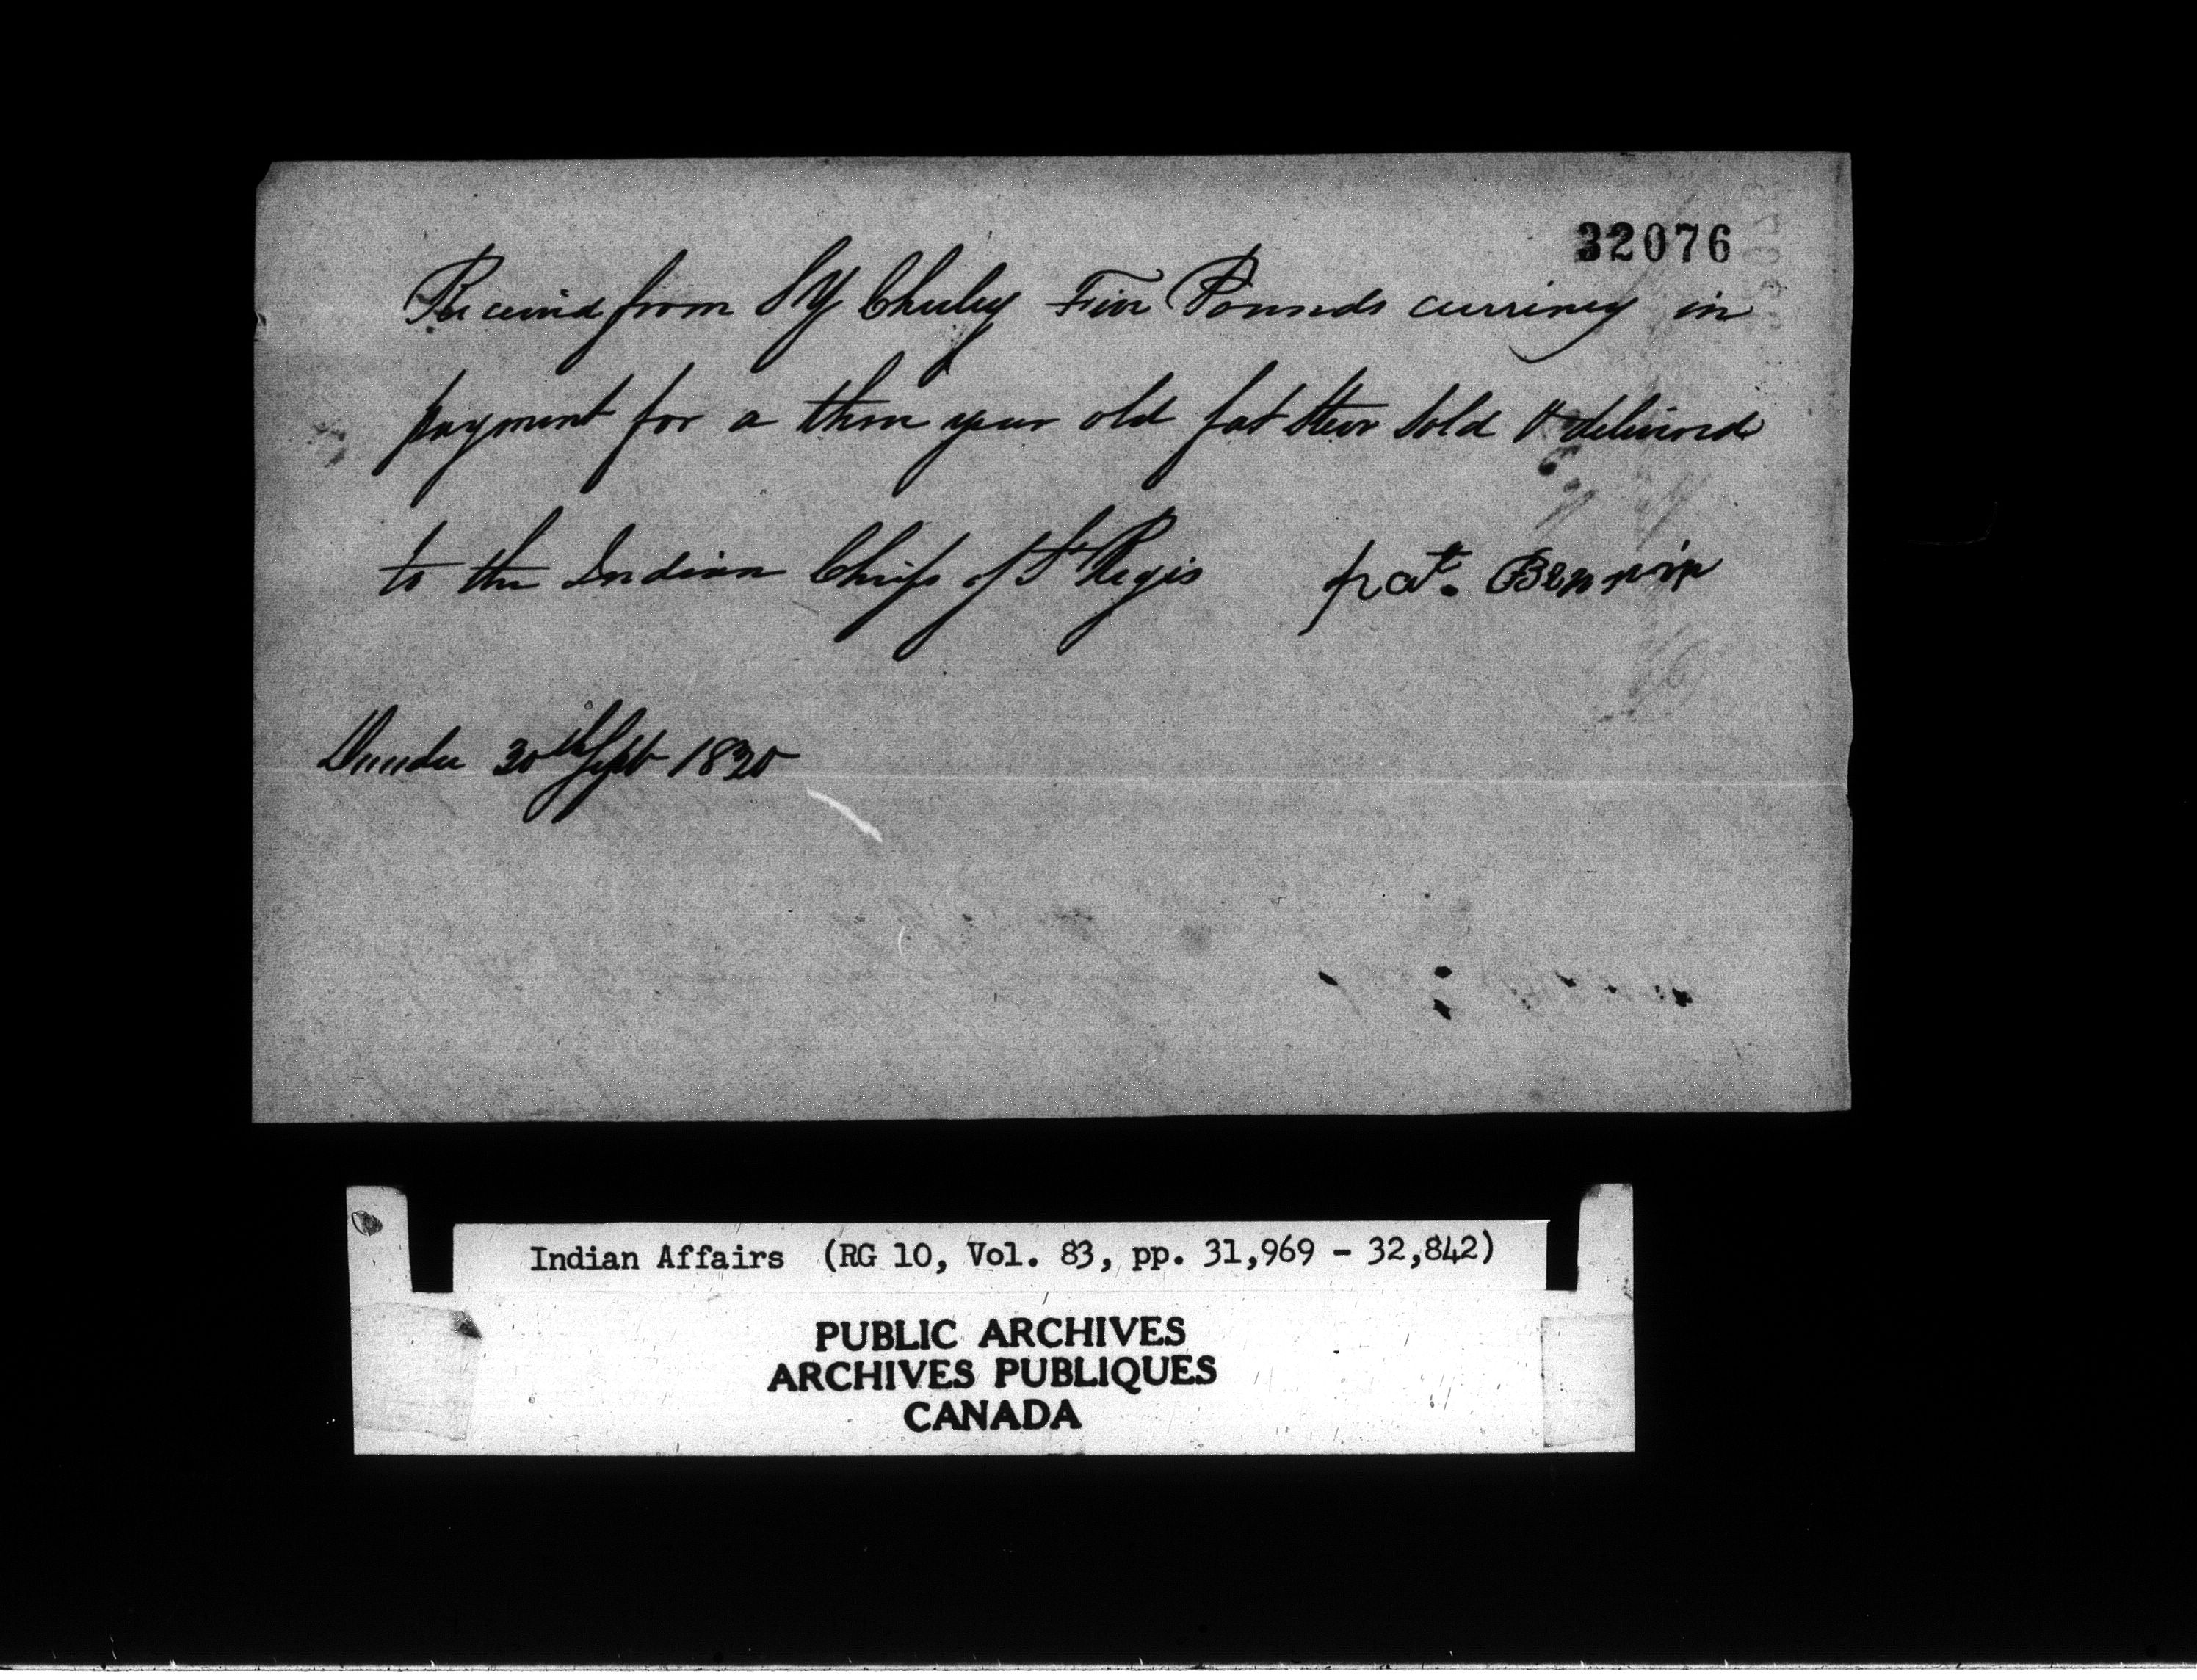 32076
Received from S Y Chesley Five Pounds currency in
payment for a three year old fat steer sold & delivered
to the Indian Chiefs of St Regis pat. Bennin
Dundee 30th Sept 1830
Indian Affairs (RG 10, Vol. 83, pp. 31,969 - 32,842)
PUBLIC ARCHIVES
ARCHIVES PUBLIQUES
CANADA